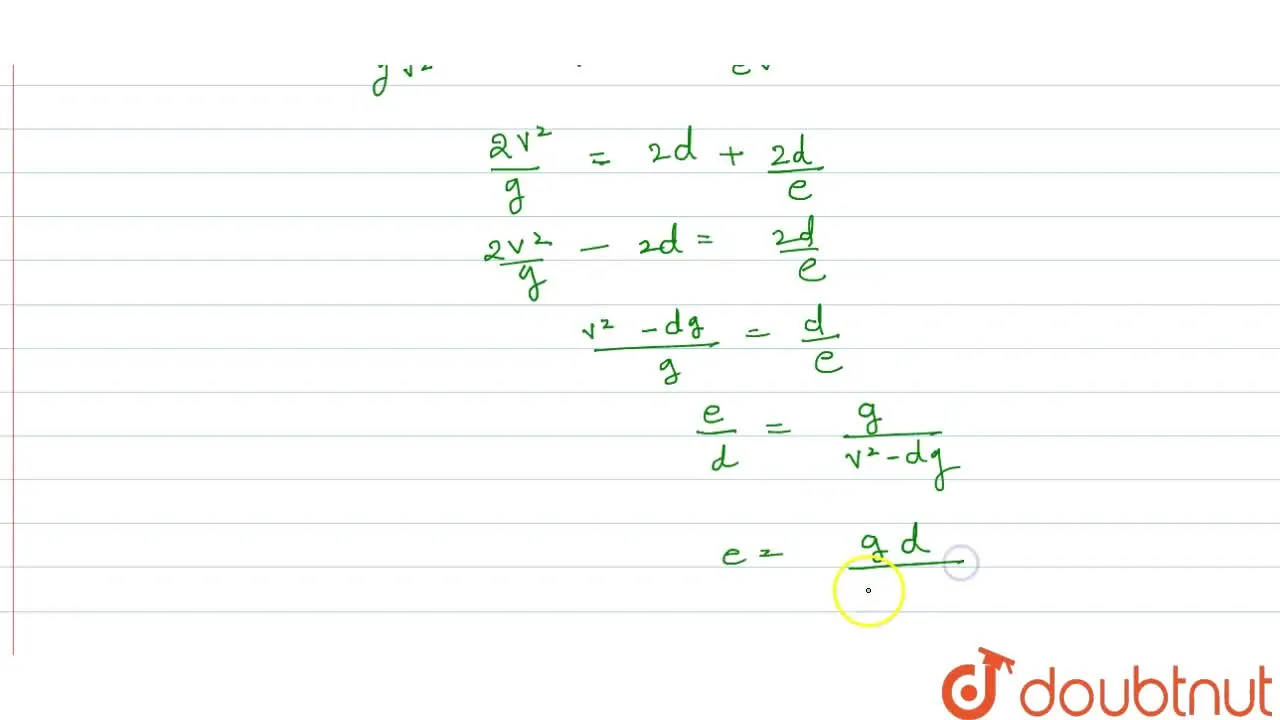 2v²/g = 2d + 2d/e
2v²/g - 2d = 2d/e
v² - dg/g = d/e
e/d = g/v² - dg
e = g d
doubtnut